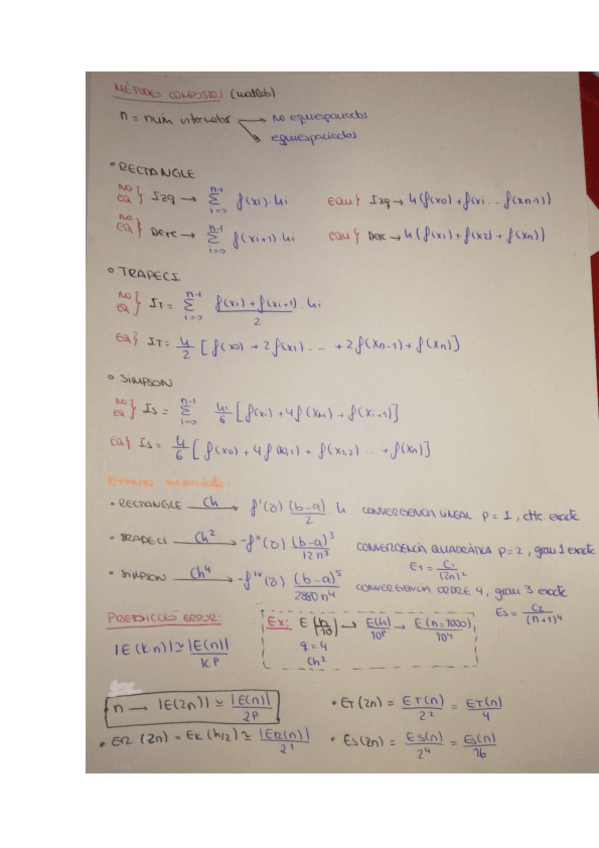 MÉTODES COMPOSTOS (matlab)
n = núm intervalos → no equiespaciados
→ equiespaciados
• RECTANGLE
NO EQ } Izq → Σ_{i=0}^{n-1} f(xi)·hi
EQUI } Izq → h(f(x0) + f(xi... f(xn-1))
NO EQ } Derc → Σ_{i=0}^{n-1} f(xi+1)·hi
EQUI } Derc → h(f(x1) + f(x2) + f(xn))
• TRAPECI
NO EQ } IT = Σ_{i=0}^{n-1} (f(xi) + f(xi+1))/2 · hi
EQ } IT = h/2 [f(x0) + 2f(xi) ... + 2f(xn-1) + f(xn)]
• SIMPSON
NO EQ } Is = Σ_{i=0}^{n-1} hi/6 [f(xi) + 4f(xm) + f(xi+1)]
EQ } Is = h/6 [f(x0) + 4f( ) + f( ) ... + f(xn)]
Errores
• RECTANGLE Ch → f'(δ) (b-a)/2 · h CONVERGENCIA LINEAL P = 1, exacte
• TRAPECI Ch² → -f''(δ) (b-a)³/12n² CONVERGENCIA QUADRÀTICA P=2, grau 1 exacte
E1 = C1/(2n)²
• SIMPSON Ch⁴ → -f^IV(δ) (b-a)⁵/2880n⁴ CONVERGENCIA ORDRE 4, grau 3 exacte
Es = C2/(n+1)⁴
PREDICCIÓ ERROR:
|E(k·n)| ≃ |E(n)|/K^P
Ex: E(h/10) → E(h)/10^P → E(n=1000)/10⁴
q = 4
Ch²
n → |E(2n)| ≃ |E(n)|/2^P
• ET(2n) = ET(n)/2² = ET(n)/4
• ER(2n) = ER(h/2) ≃ |ER(n)|/2¹
• Es(2n) = Es(n)/2⁴ = Es(n)/16